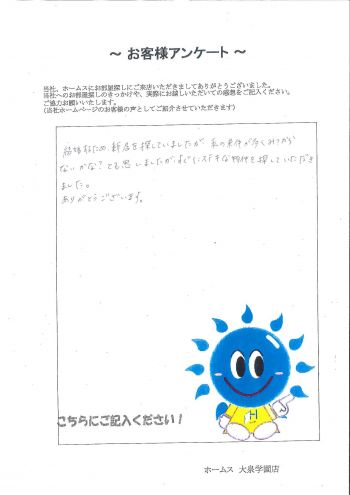 ～ お客様アンケート ～
当社、ホームスにお部屋探しにご来店いただきましてありがとうございました。
当社へのお部屋探しのきっかけや、実際にお越しいただいての感想をご記入ください。
ご協力お願いします。
(当社ホームページのお客様の声としてご紹介させていただきます)
結婚のため、新居を探していましたが、私の条件が多くみつから
ないかな？とも思いましたが、すぐにステキな物件を探していただき
ました。
ありがとうございます。
H
こちらにご記入ください！
ホームス 大泉学園店